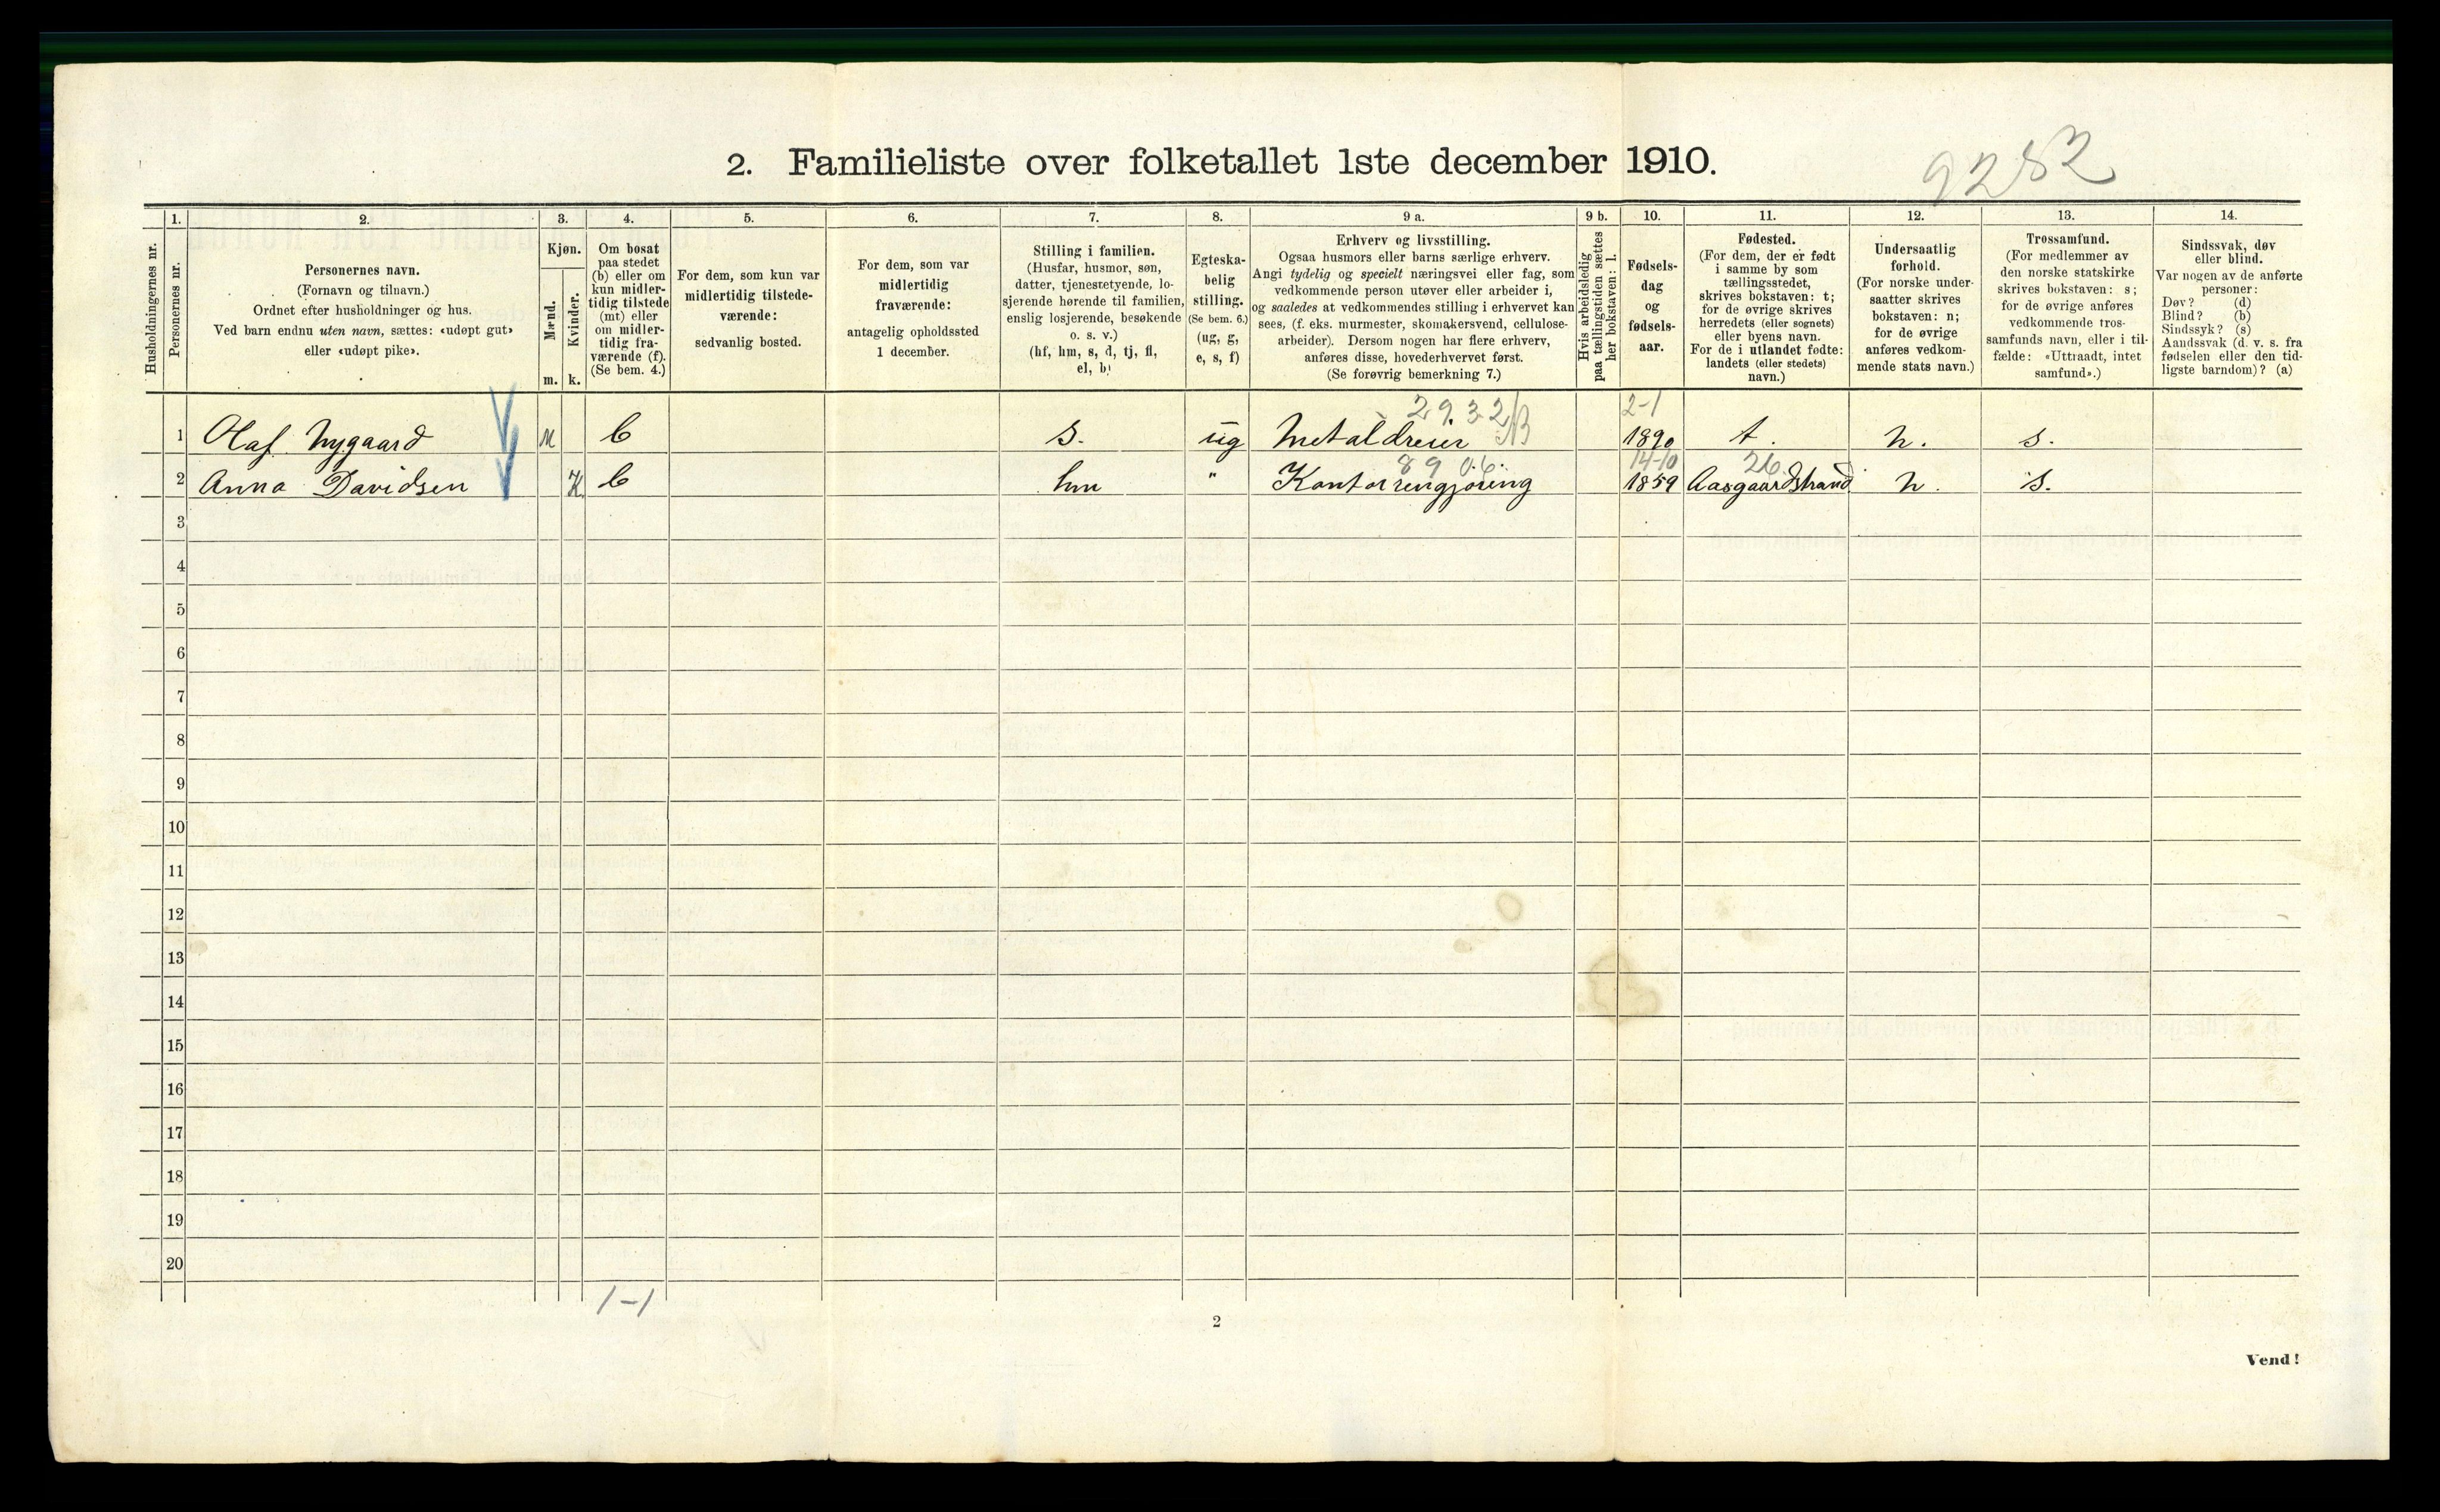 2. Familieliste over folketallet 1ste december 1910.
9282
Husholdningernes nr.
1.
Personernes nr.
2.
Personernes navn.
(Fornavn og tilnavn.)
Ordnet efter husholdninger og hus.
Ved barn endnu uten navn, sættes: «udøpt gut»
eller «udøpt pike».
3.
Kjøn.
Mænd.
Kvinder.
m. k.
4.
Om bosat
paa stedet
(b) eller om
kun midler-
tidig tilstede
(mt) eller
om midler-
tidig fra-
værende (f).
(Se bem. 4.)
5.
For dem, som kun var
midlertidig tilstede-
værende:
sedvanlig bosted.
6.
For dem, som var
midlertidig
fraværende:
antagelig opholdssted
1 december.
7.
Stilling i familien.
(Husfar, husmor, søn,
datter, tjenestetyende, lo-
sjerende hørende til familien,
enslig losjerende, besøkende
o. s. v.)
(hf, hm, s, d, tj, fl,
el, b)
8.
Egteska-
belig
stilling.
(Se bem. 6.)
(ug, g,
e, s, f)
9 a.
Erhverv og livsstilling.
Ogsaa husmors eller barns særlige erhverv.
Angi tydelig og specielt næringsvei eller fag, som
vedkommende person utøver eller arbeider i,
og saaledes at vedkommendes stilling i erhvervet kan
sees, (f. eks. murmester, skomakersvend, cellulose-
arbeider). Dersom nogen har flere erhverv,
anføres disse, hovederhvervet først.
(Se forøvrig bemerkning 7.)
9 b.
Hvis arbeidsledig
paa tællingstiden sættes
her bokstaven: l.
10.
Fødsels-
dag
og
fødsels-
aar.
11.
Fødested.
(For dem, der er født
i samme by som
tællingsstedet,
skrives bokstaven: t;
for de øvrige skrives
herredets (eller sognets)
eller byens navn.
For de i utlandet fødte:
landets (eller stedets)
navn.)
12.
Undersaatlig
forhold.
(For norske under-
saatter skrives
bokstaven: n;
for de øvrige
anføres vedkom-
mende stats navn.)
13.
Trossamfund.
(For medlemmer av
den norske statskirke
skrives bokstaven: s;
for de øvrige anføres
vedkommende tros-
samfunds navn, eller i til-
fælde: «Uttraadt, intet
samfund».)
14.
Sindssvak, døv
eller blind.
Var nogen av de anførte
personer:
Døv? (d)
Blind? (b)
Sindssyk? (s)
Aandssvak (d. v. s. fra
fødselen eller den tid-
ligste barndom)? (a)
2932 B 2-1
1 Olaf Nygaard M b s. ug Metaldreier 1890 t. n. s.
8906. 14-10 26.
2 Anna Davidsen K b hm " Kontorrengjøring 1859 Aasgaardstrand n. s.
3
4
5
6
7
8
9
10
11
12
13
14
15
16
17
18
19
20
1-1
2
Vend!